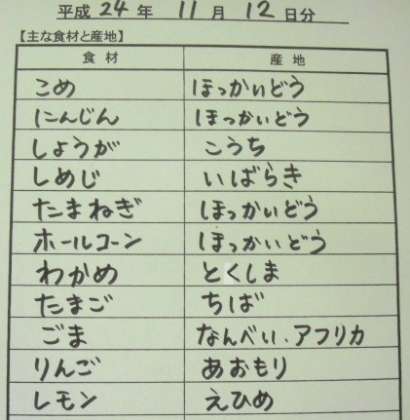 平成 24 年 11 月 12 日分
【主な食材と産地】
食材 産地
こめ ほっかいどう
にんじん ほっかいどう
しょうが こうち
しめじ いばらき
たまねぎ ほっかいどう
ホールコーン ほっかいどう
わかめ とくしま
たまご ちば
ごま なんべい.アフリカ
りんご あおもり
レモン えひめ